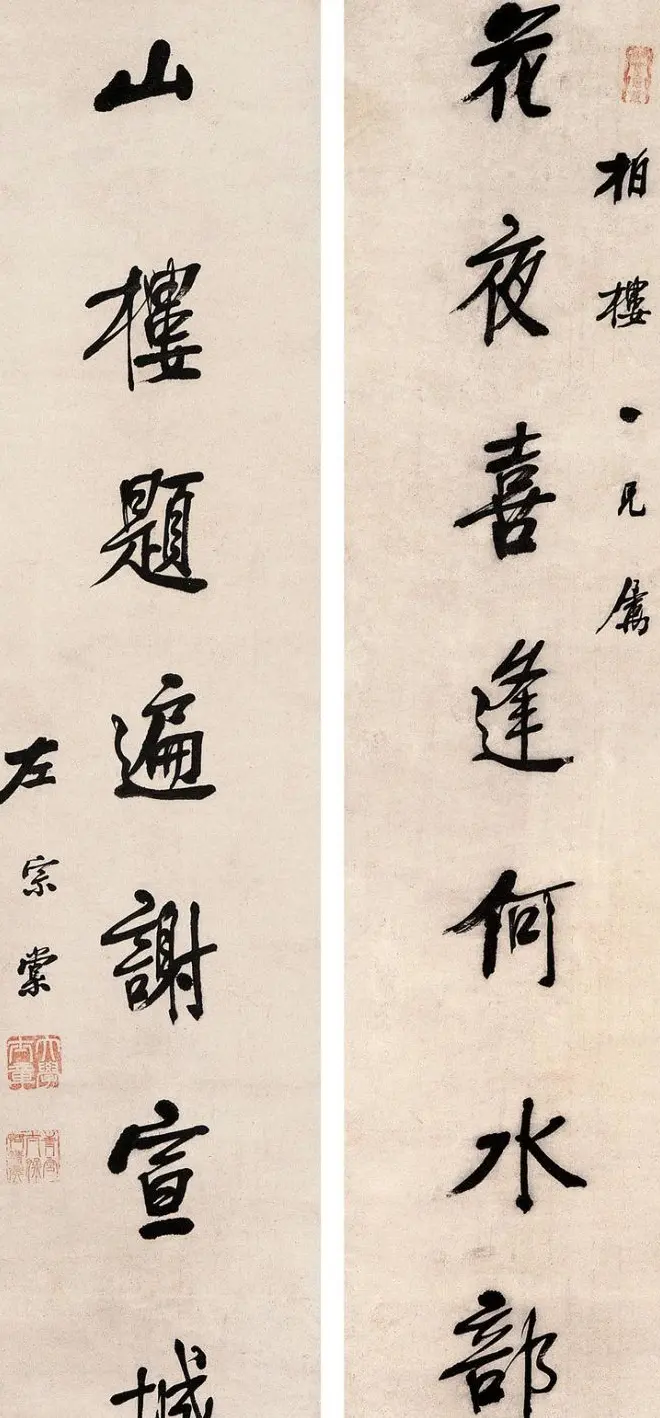 柏樓一兄屬
花夜喜逢何水部
山樓題遍謝宣城
左宗棠